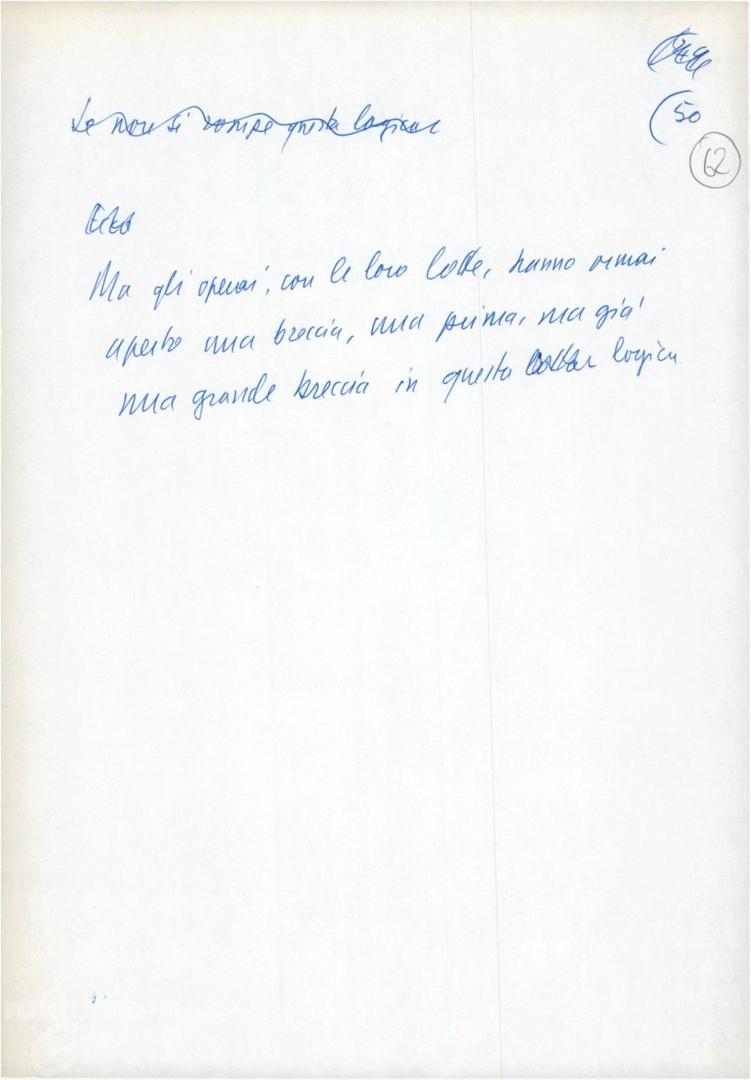 (50
62
Se non si rompe questa logica
Ma gli operai, con le loro lotte, hanno ormai
aperto una breccia, una prima, ma già
una grande breccia in questa logica